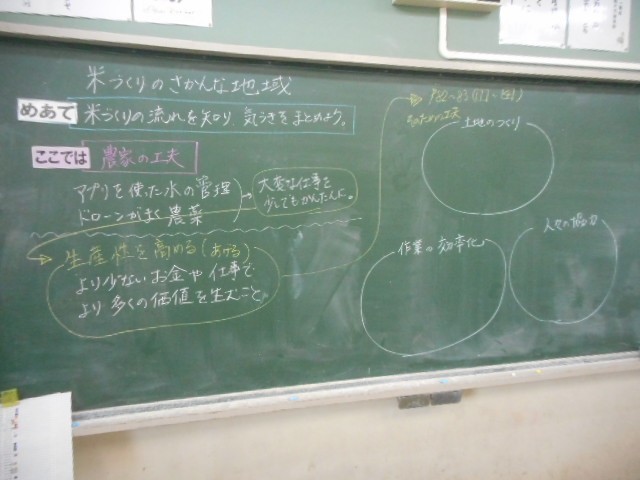 米づくりのさかんな地域
めあて 米づくりの流れを知り 気づきをまとめよう。
ここでは 農家の工夫
アプリを使った水の管理
ドローンがまく農薬
大変な仕事を
少しでもかんたんに。
生産性を高める(あげる)
より少ないお金や仕事で
より多くの価値を生むこと
そのための工夫
土地のつくり
作業の効率化